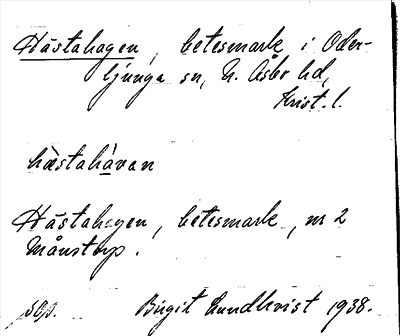 Hästahagen, betesmark i Oder-
ljunga sn, N. Åsbo hd,
Krist. l.
hæstahàvan
Hästahagen, betesmark, nr 2
Månstorp.
Birgit Lundkvist 1938.